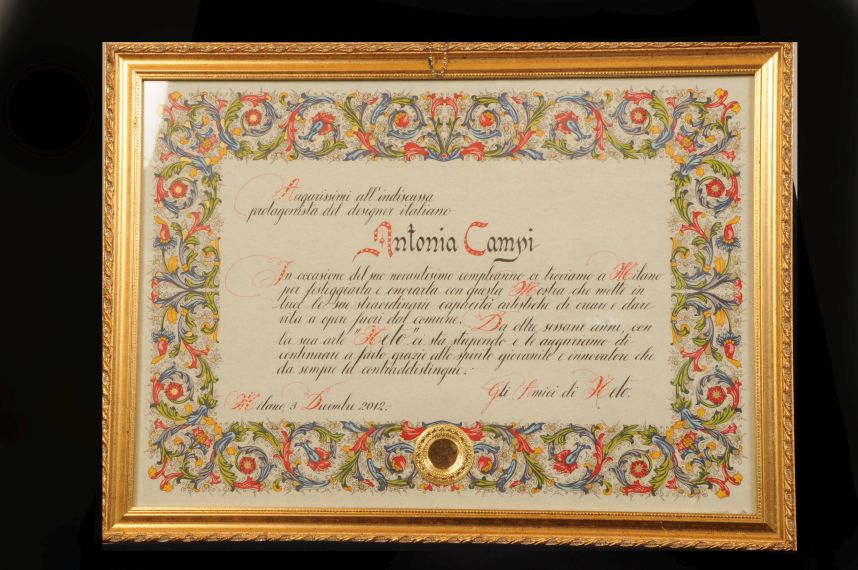 Augurissimi all'indiscussa
protagonista del designer italiano
Antonia Campi
In occasione del suo novantesimo compleanno ci troviamo a Milano
per festeggiarla e onorarla con questa Mostra che mette in
luce le sue straordinarie capacità artistiche di creare e dare
vita a opere fuori dal comune. Da oltre sessant'anni, con
la sua arte "Nolo" ci sta stupendo e le auguriamo di
continuare a farlo grazie allo spirito giovanile e innovatore che
da sempre la contraddistingue.
Gli Amici di
Milano, 3 Dicembre 2012.